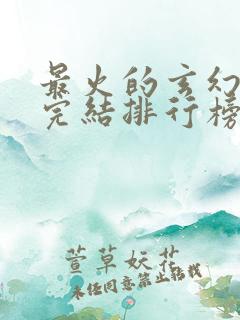 最火的玄幻
完结排行榜
萱草妖花
未经同意禁止转载